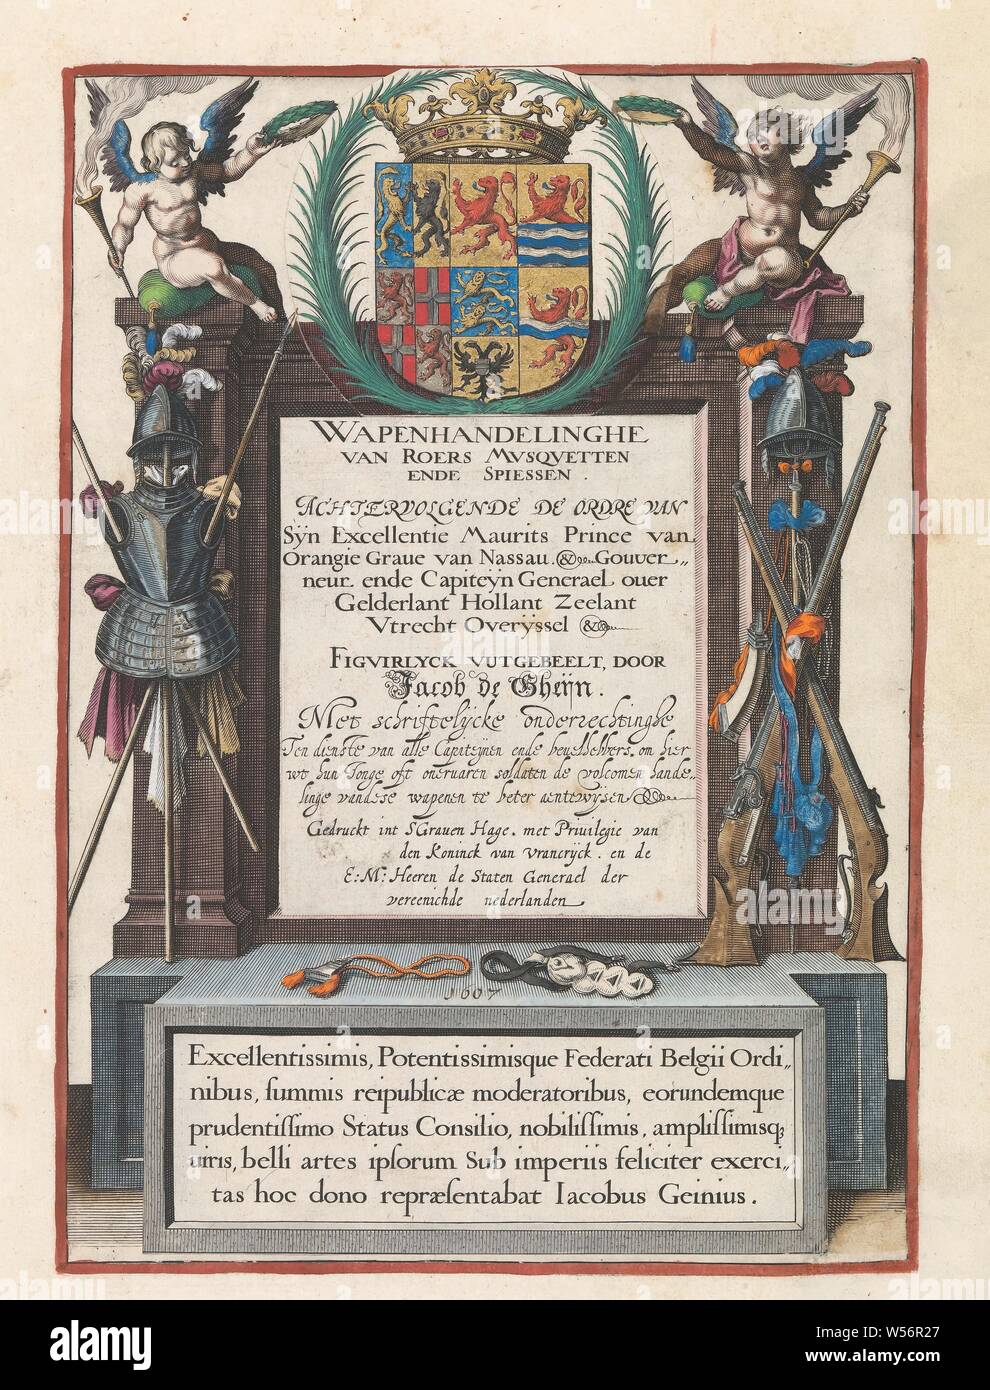 WAPENHANDELINGHE
VAN ROERS MVSQVETTEN
ENDE SPIESSEN.
ACHTERVOLGENDE DE ORDRE VAN
Sÿn Excellentie Maurits Prince van
Orangie Graue van Nassau. & Gouver„
neur ende Capiteÿn Generael ouer
Gelderlant Hollant Zeelant
Vtrecht Overÿssel &
FIGVIRLYCK VUTGEBEELT, DOOR
Jacob de Gheÿn.
Met schriftelÿcke onderrechtinghe
Ten dienste van alle Capiteÿnen ende beuelhebbers. om hier
wt hun Jonge oft onervaren soldaten de volcomen hande„
linge vandese wapenen te beter aentewÿsen
Gedruckt int S'Graven Hage. met Privilegie van
den Koninck van Vrancrÿck. en de
E:M: Heeren de Staten Generael der
vereenichde nederlanden
1607
Excellentissimis, Potentissimisque Federati Belgii Ordi„
nibus, summis reipublicæ moderatoribus, eorundemque
prudentissimo Status Consilio, nobilissimis, amplissimisq;
uiris, belli artes ipsorum Sub imperiis feliciter exerci„
tas hoc dono repræsentabat Iacobus Geinius.
a
alamy
a
alamy
a
a
alamy
alamy
Image ID: W56R27
www.alamy.com